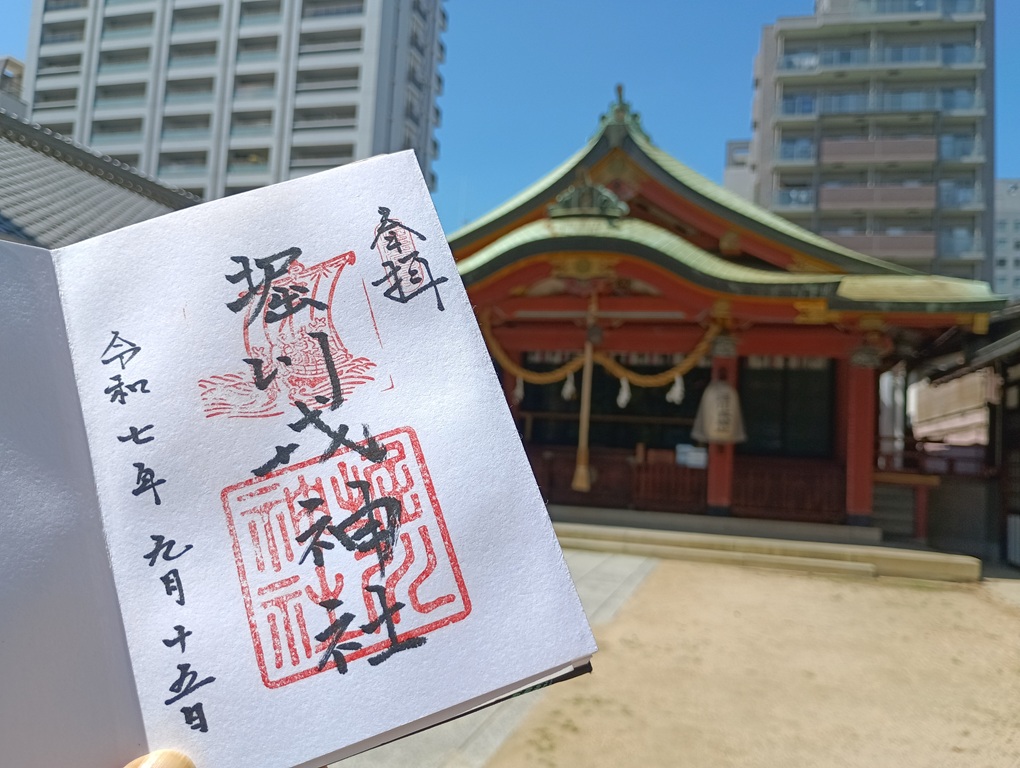 奉拝
堀川戎神社
堀川
神社
令和七年九月十五日